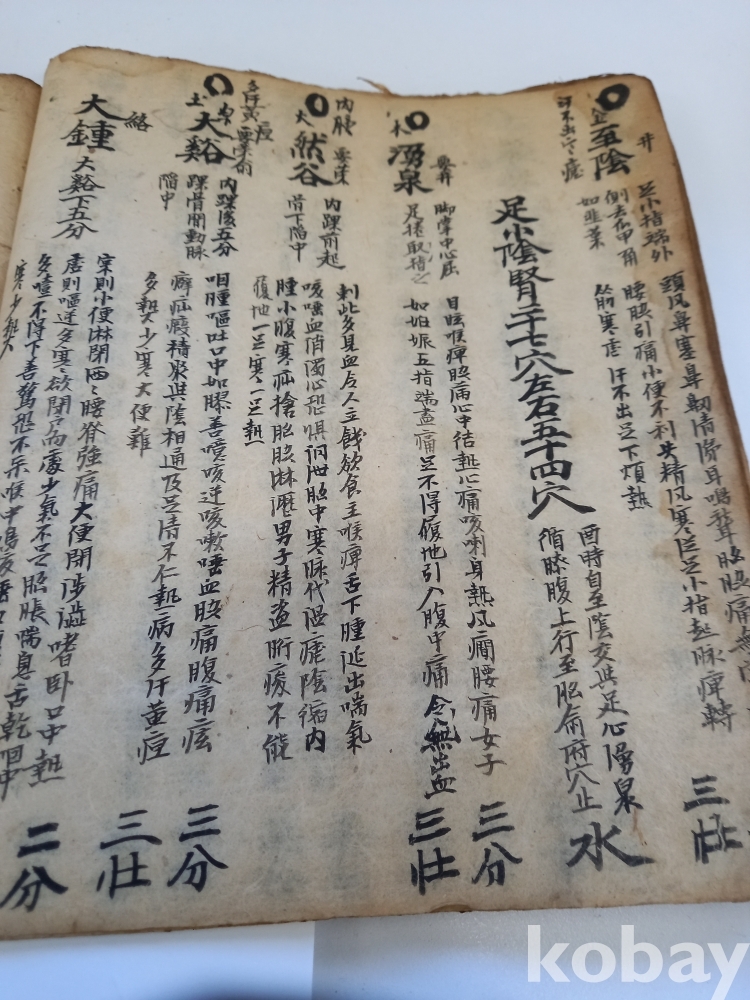 井
金至陰
足小指端外
側去爪甲角
如韭葉
汗不出寒瘧
頭風鼻塞鼻鼽清涕耳鳴聾胸脇痛無
腰脇引痛小便不利失精風寒從足小指起脉痺轉
筋寒瘧汗不出足下煩熱
三壯
足少陰腎二十七穴左右五十四穴
酉時自至陰交與足心湧泉
循膝腹上行至胸俞府穴止
水
木湧泉
脚掌中心屈
足捲取指之
目眩喉痺胸痛心中結熱心痛咳喇身熱風癎腰痛女子
如妊娠五指端盡痛足不得履地引入腹中痛令無出血
三分
三壯
火然谷
内踝前起
骨下陷中
刺此多見血令人立餓欲食主喉痺舌下腫延出喘氣
咳唾血
腫小腹寒疝搶胸脇淋瀝男子精盜䯒痠不能
履地一足寒一足熱
土大谿
多汗黄疸
内踝後五分
踝骨間動脉
陷中
咽腫嘔吐口中如膠善噫咳逆咳嗽唾血脇痛腹痛痃
癖疝癥積聚與陰相通及足清不仁熱病多汗黄疸
多熱少寒大便難
三分
三壯
絡
大鍾
大谿下五分
實則小便淋閉洒〻腰脊強痛大便閉澁嗜卧口中熱
虚則嘔逆多寒欲閉户而處少氣不足胸脹喘息舌乾咽中
多噎不得下善驚恐不樂喉中鳴咳唾
寒少熱
二分
kobay